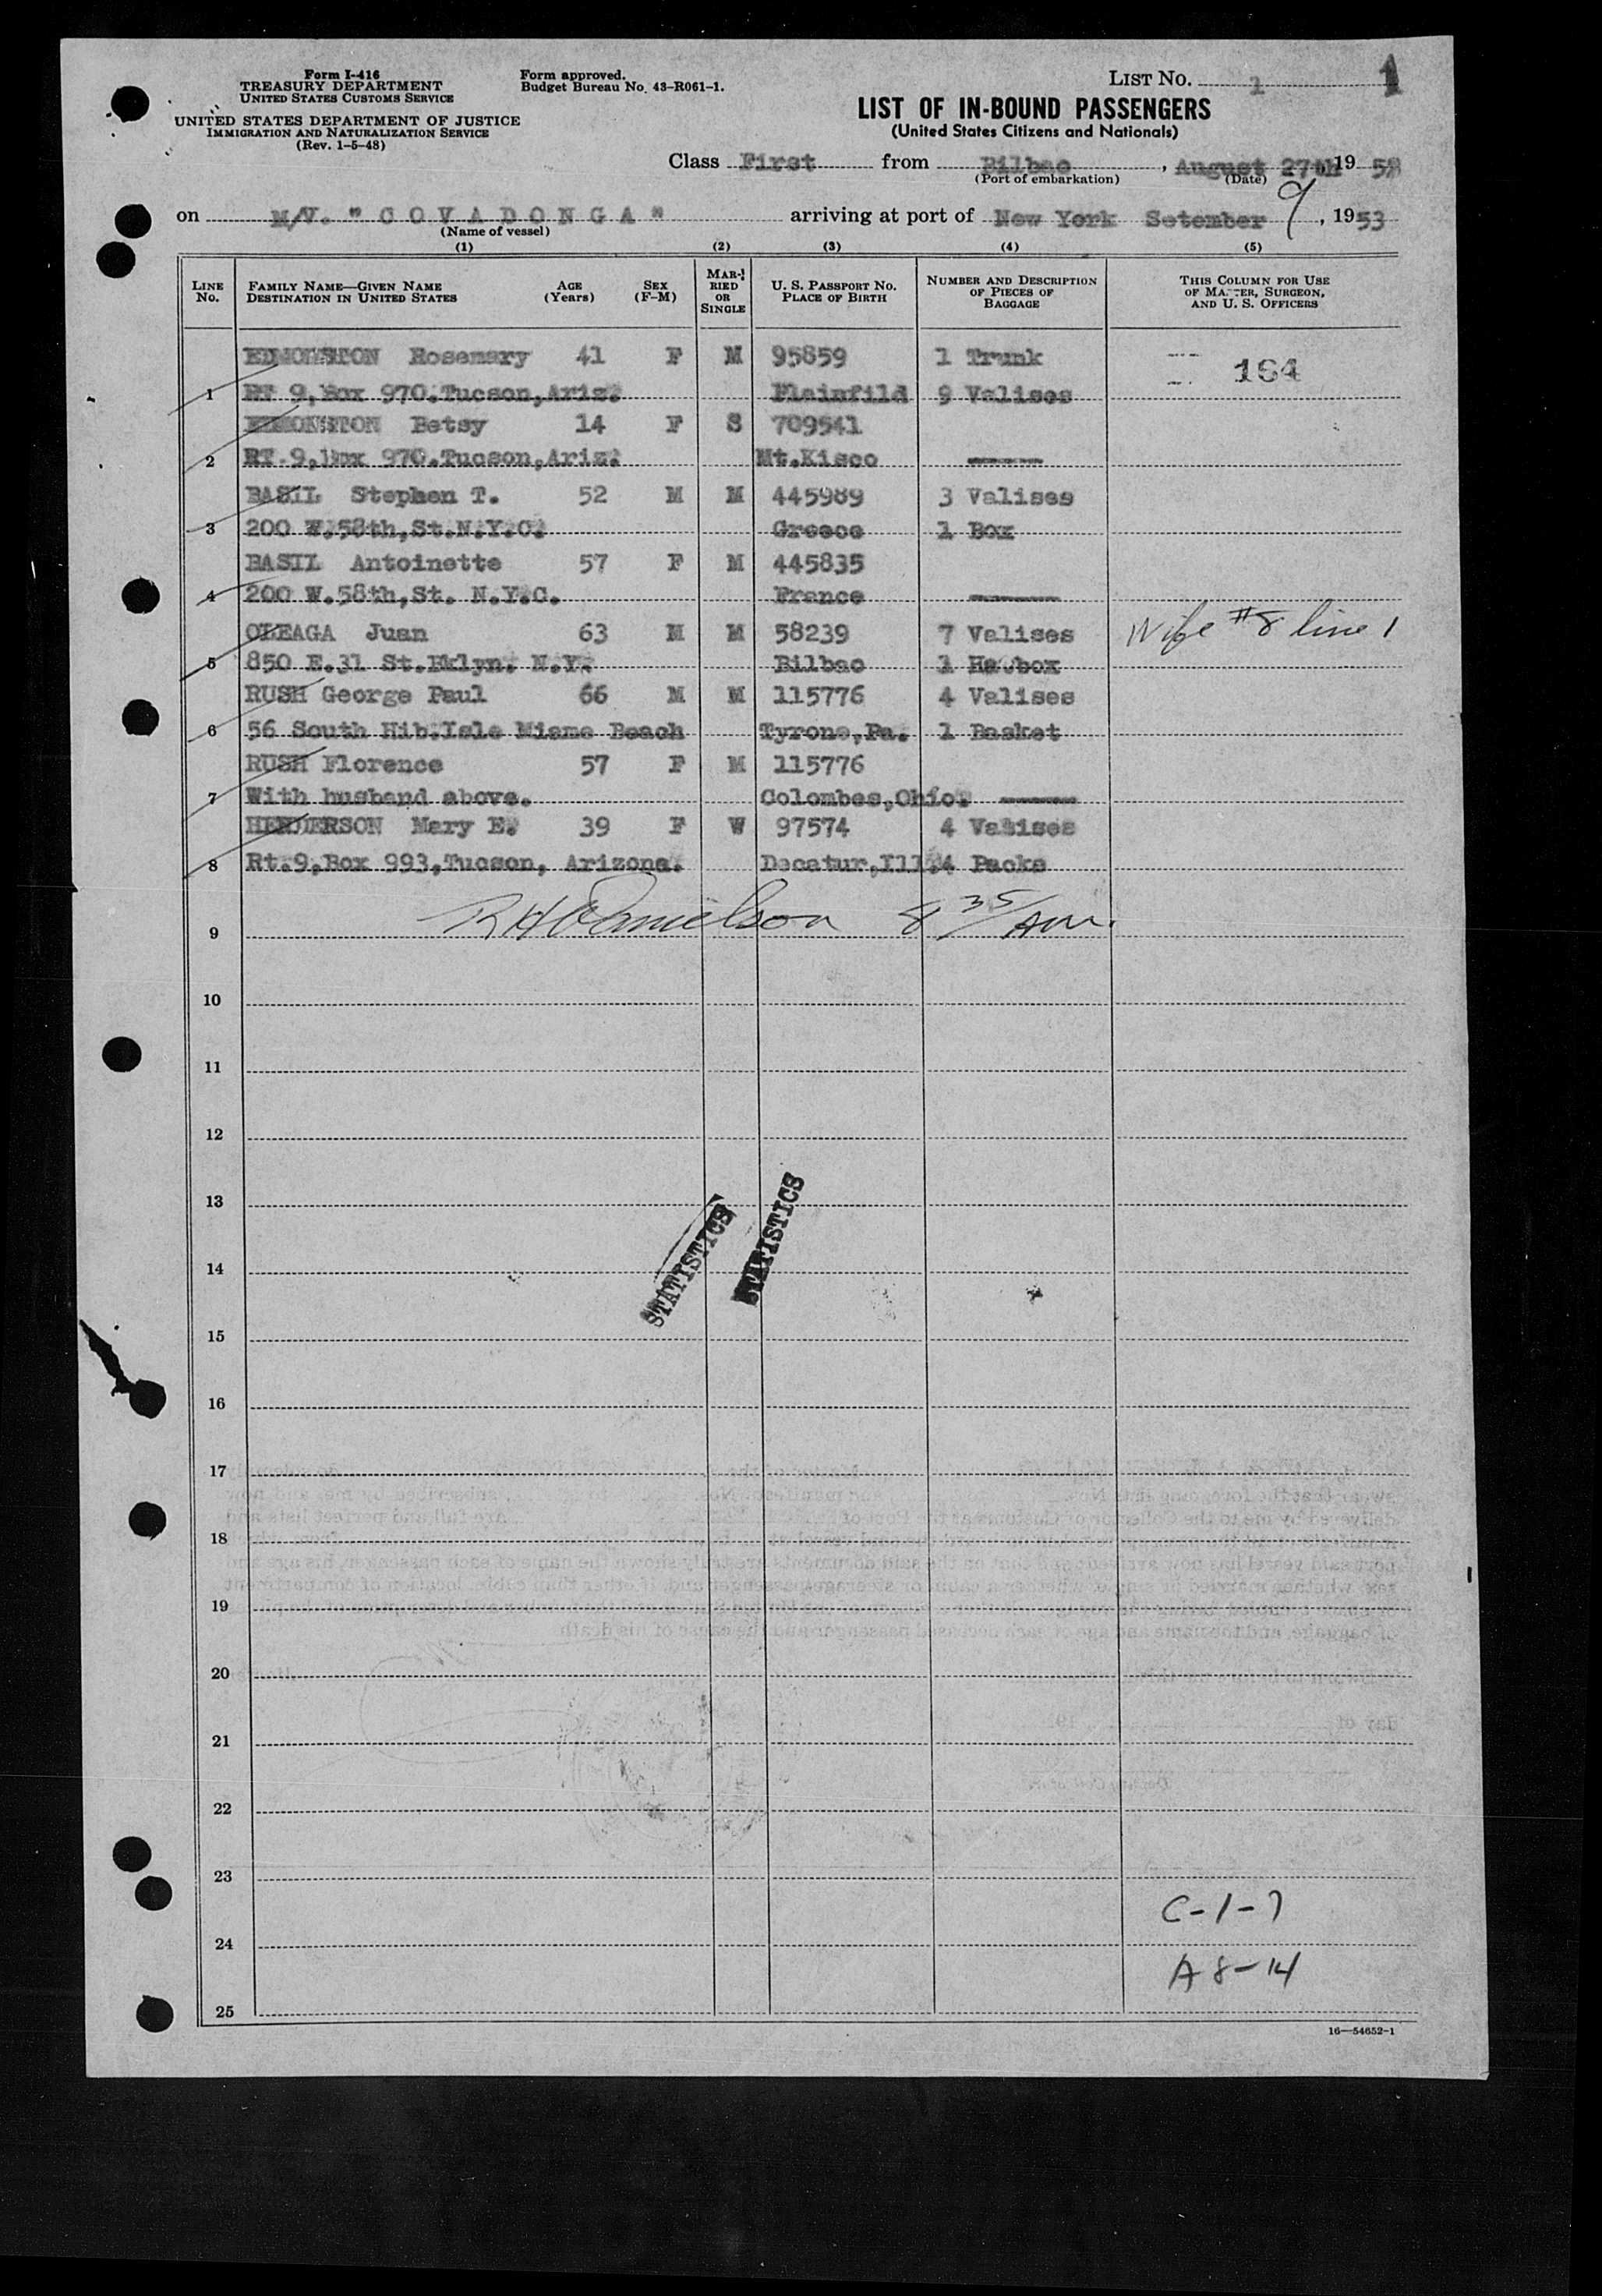 Form I-416
TREASURY DEPARTMENT
UNITED STATES CUSTOMS SERVICE
UNITED STATES DEPARTMENT OF JUSTICE
IMMIGRATION AND NATURALIZATION SERVICE
(Rev. 1-5-48)
Form approved.
Budget Bureau No. 43-R061-1.
LIST No. 1 1
LIST OF IN-BOUND PASSENGERS
(United States Citizens and Nationals)
Class First from Bilbao, August 27th 19 53
(Port of embarkation) (Date)
on M/V. " C O V A D O N G A " arriving at port of New York Setember 9, 1953
(Name of vessel)
(1) (2) (3) (4) (5)
LINE No. FAMILY NAME—GIVEN NAME DESTINATION IN UNITED STATES AGE (Years) SEX (F-M) MARRIED OR SINGLE U. S. PASSPORT NO. PLACE OF BIRTH NUMBER AND DESCRIPTION OF PIECES OF BAGGAGE THIS COLUMN FOR USE OF MASTER, SURGEON, AND U. S. OFFICERS
EDMONSTON Rosemary 41 F M 95859 1 Trunk 164
1 RT 9,Box 970.Tucson,Ariz. Plainfild 9 Valises
EDMONSTON Betsy 14 F S 709541
2 RT.9,Box 970.Tucson,Ariz. Mt.Kisco
BASIL Stephen T. 52 M M 445989 3 Valises
3 200 W.58th,St.N.Y.C. Greece 1 Box
BASIL Antoinette 57 F M 445835
4 200 W.58th,St. N.Y.C. France
OLEAGA Juan 63 M M 58239 7 Valises Wife #8 line 1
5 850 E.31 St.Bklyn. N.Y. Bilbao 1 Hatbox
RUSH George Paul 66 M M 115776 4 Valises
6 56 South Hib.Isle Miame Beach Tyrone,Pa. 1 Basket
RUSH Florence 57 F M 115776
7 With husband above. Colombes,Ohio.
HENDERSON Mary E. 39 F W 97574 4 Valises
8 Rt.9,Box 993,Tucson, Arizona. Decatur,Ill. 4 Packs
9 R H Danielson 8 35/AM.
10
11
12
13
STATISTICS STATISTICS
14
15
16
17
18
19
20
21
22
23
C-1-7
24
A 8-14
25
16—54652-1